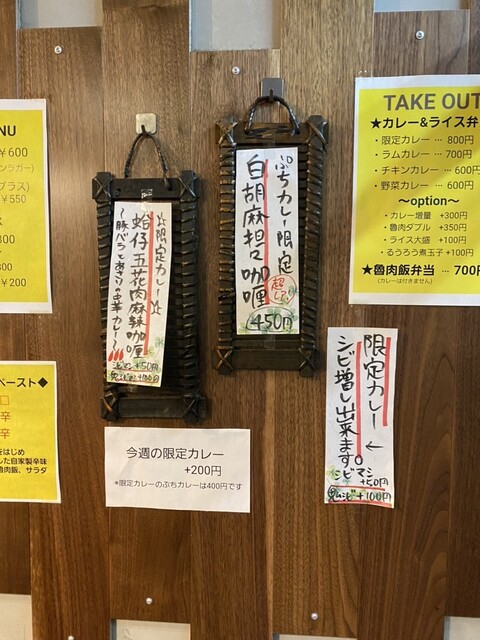 NU
￥600
ンラガー)
プラス)
￥550
300
300
￥200
ペースト◆
辛
辛
をはじめ
した自家製辛味
魯肉飯、サラダ
☆限定カレー☆
蛤仔五花肉麻辣咖喱
～豚バラとあさりの中華カレー～
シビマシ+50円
鬼シビ+100円
ぷちカレー限定
白胡麻担々咖喱
450円
今週の限定カレー
+200円
*限定カレーのぷちカレーは400円です
TAKE OUT
★カレー&ライス弁
・限定カレー … 800円
・ラムカレー … 700円
・チキンカレー … 600円
・野菜カレー … 600円
～option～
・カレー増量 +300円
・魯肉ダブル +350円
・ライス大盛 +100円
・るうろう煮玉子 +100円
★魯肉飯弁当 … 700円
(カレーは付きません)
限定カレー ←
シビ増し出来ます。
シビマシ+50円
鬼シビ+100円